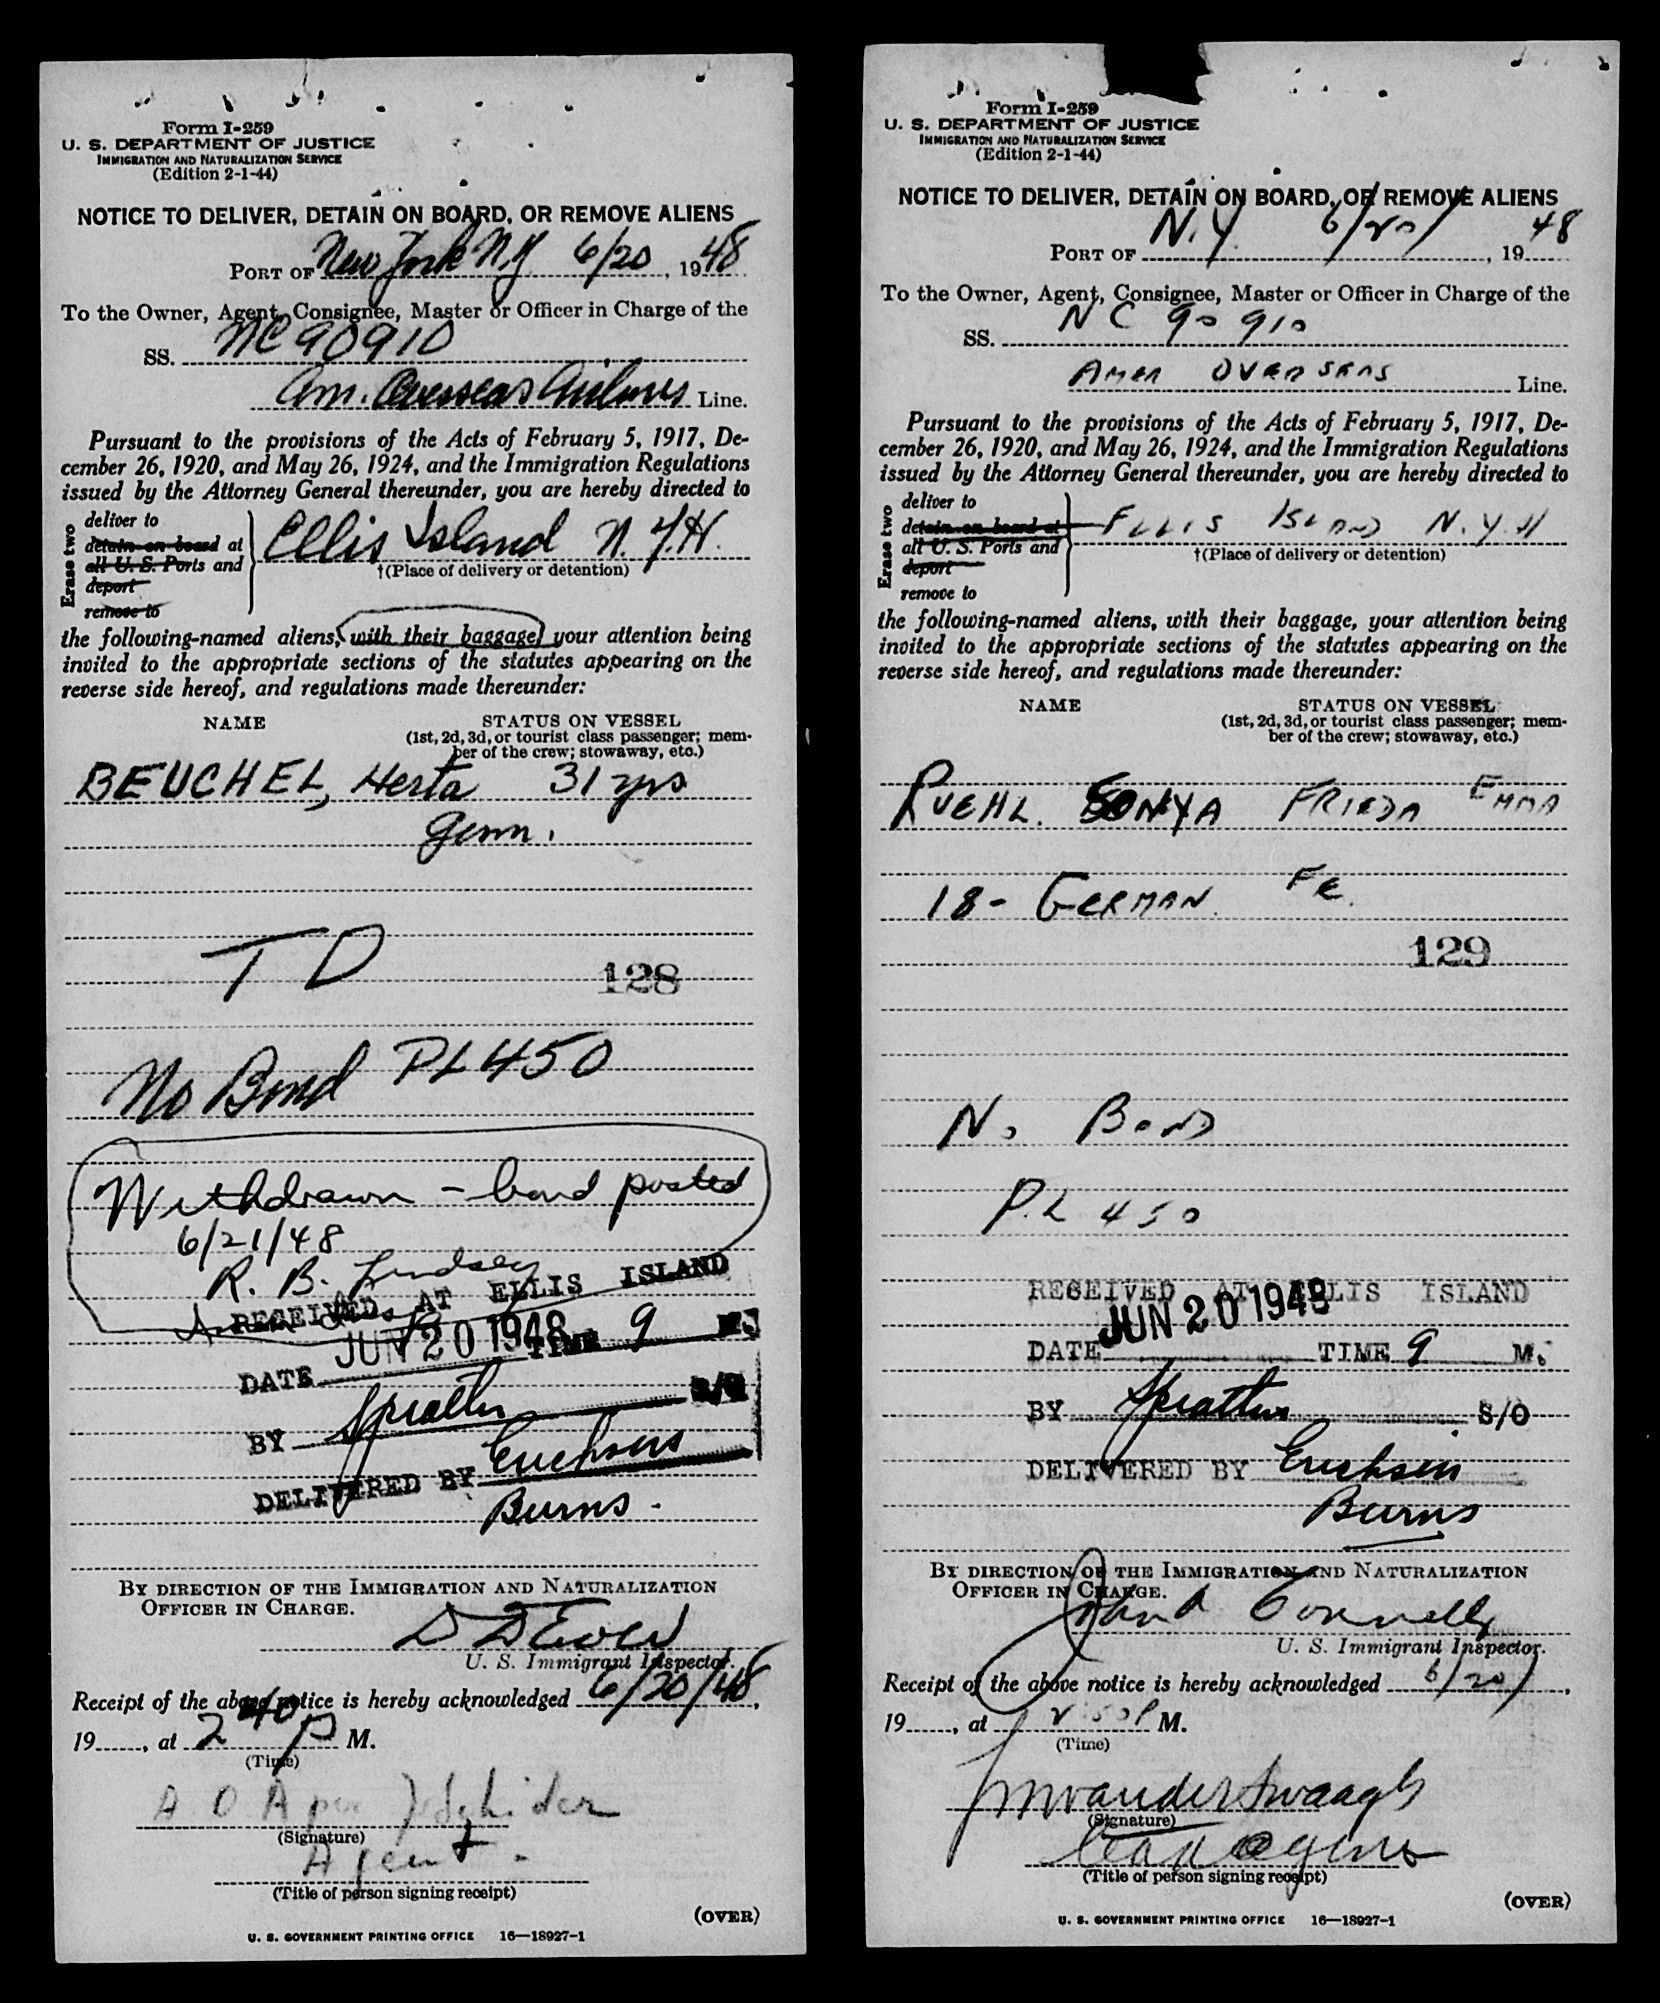 Form I-259
U. S. DEPARTMENT OF JUSTICE
IMMIGRATION AND NATURALIZATION SERVICE
(Edition 2-1-44)
NOTICE TO DELIVER, DETAIN ON BOARD, OR REMOVE ALIENS
PORT OF New York N.Y. 6/20, 1948
To the Owner, Agent, Consignee, Master or Officer in Charge of the
SS. NC90910
Am. Overseas Airlines Line.
Pursuant to the provisions of the Acts of February 5, 1917, De-
cember 26, 1920, and May 26, 1924, and the Immigration Regulations
issued by the Attorney General thereunder, you are hereby directed to
Erase two
deliver to
detain on board at
all U. S. Ports and
deport
remove to
Ellis Island N.Y.H.
†(Place of delivery or detention)
the following-named aliens, with their baggage, your attention being
invited to the appropriate sections of the statutes appearing on the
reverse side hereof, and regulations made thereunder:
NAME STATUS ON VESSEL
(1st, 2d, 3d, or tourist class passenger; mem-
ber of the crew; stowaway, etc.)
BEUCHEL, Herta 31 yrs
Germ.
T D
128
No Bond PL450
Withdrawn - bond posted
6/21/48
R. B. Lindsey
RECEIVED AT ELLIS ISLAND
JUN 20 1948
DATE TIME 9 M.
BY Spratlin S/O
DELIVERED BY
Burns.
BY DIRECTION OF THE IMMIGRATION AND NATURALIZATION
OFFICER IN CHARGE.
U. S. Immigrant Inspector.
Receipt of the above notice is hereby acknowledged 6/20/48,
19......, at 2 40 P M.
(Time)
A O A per
(Signature)
Agent.
(Title of person signing receipt)
(OVER)
U. S. GOVERNMENT PRINTING OFFICE 16—18927-1
Form I-259
U. S. DEPARTMENT OF JUSTICE
IMMIGRATION AND NATURALIZATION SERVICE
(Edition 2-1-44)
NOTICE TO DELIVER, DETAIN ON BOARD, OR REMOVE ALIENS
PORT OF N.Y. 6/20/, 1948
To the Owner, Agent, Consignee, Master or Officer in Charge of the
SS. NC 90910
AMER OVERSEAS Line.
Pursuant to the provisions of the Acts of February 5, 1917, De-
cember 26, 1920, and May 26, 1924, and the Immigration Regulations
issued by the Attorney General thereunder, you are hereby directed to
Erase two
deliver to
detain on board at
all U. S. Ports and
deport
remove to
ELLIS ISLAND N.Y.H
†(Place of delivery or detention)
the following-named aliens, with their baggage, your attention being
invited to the appropriate sections of the statutes appearing on the
reverse side hereof, and regulations made thereunder:
NAME STATUS ON VESSEL
(1st, 2d, 3d, or tourist class passenger; mem-
ber of the crew; stowaway, etc.)
RUEHL. SONYA FRIEDA EMMA
18- GERMAN. FE.
129
No BOND
P.L 450
RECEIVED AT ELLIS ISLAND
JUN 20 1948
DATE TIME 9 M.
BY Spratlin S/O
DELIVERED BY
Burns
BY DIRECTION OF THE IMMIGRATION AND NATURALIZATION
OFFICER IN CHARGE.
Connelly
U. S. Immigrant Inspector.
Receipt of the above notice is hereby acknowledged 6/20/,
19......, at 2:50P M.
(Time)
(Signature)
(Title of person signing receipt)
(OVER)
U. S. GOVERNMENT PRINTING OFFICE 16—18927-1